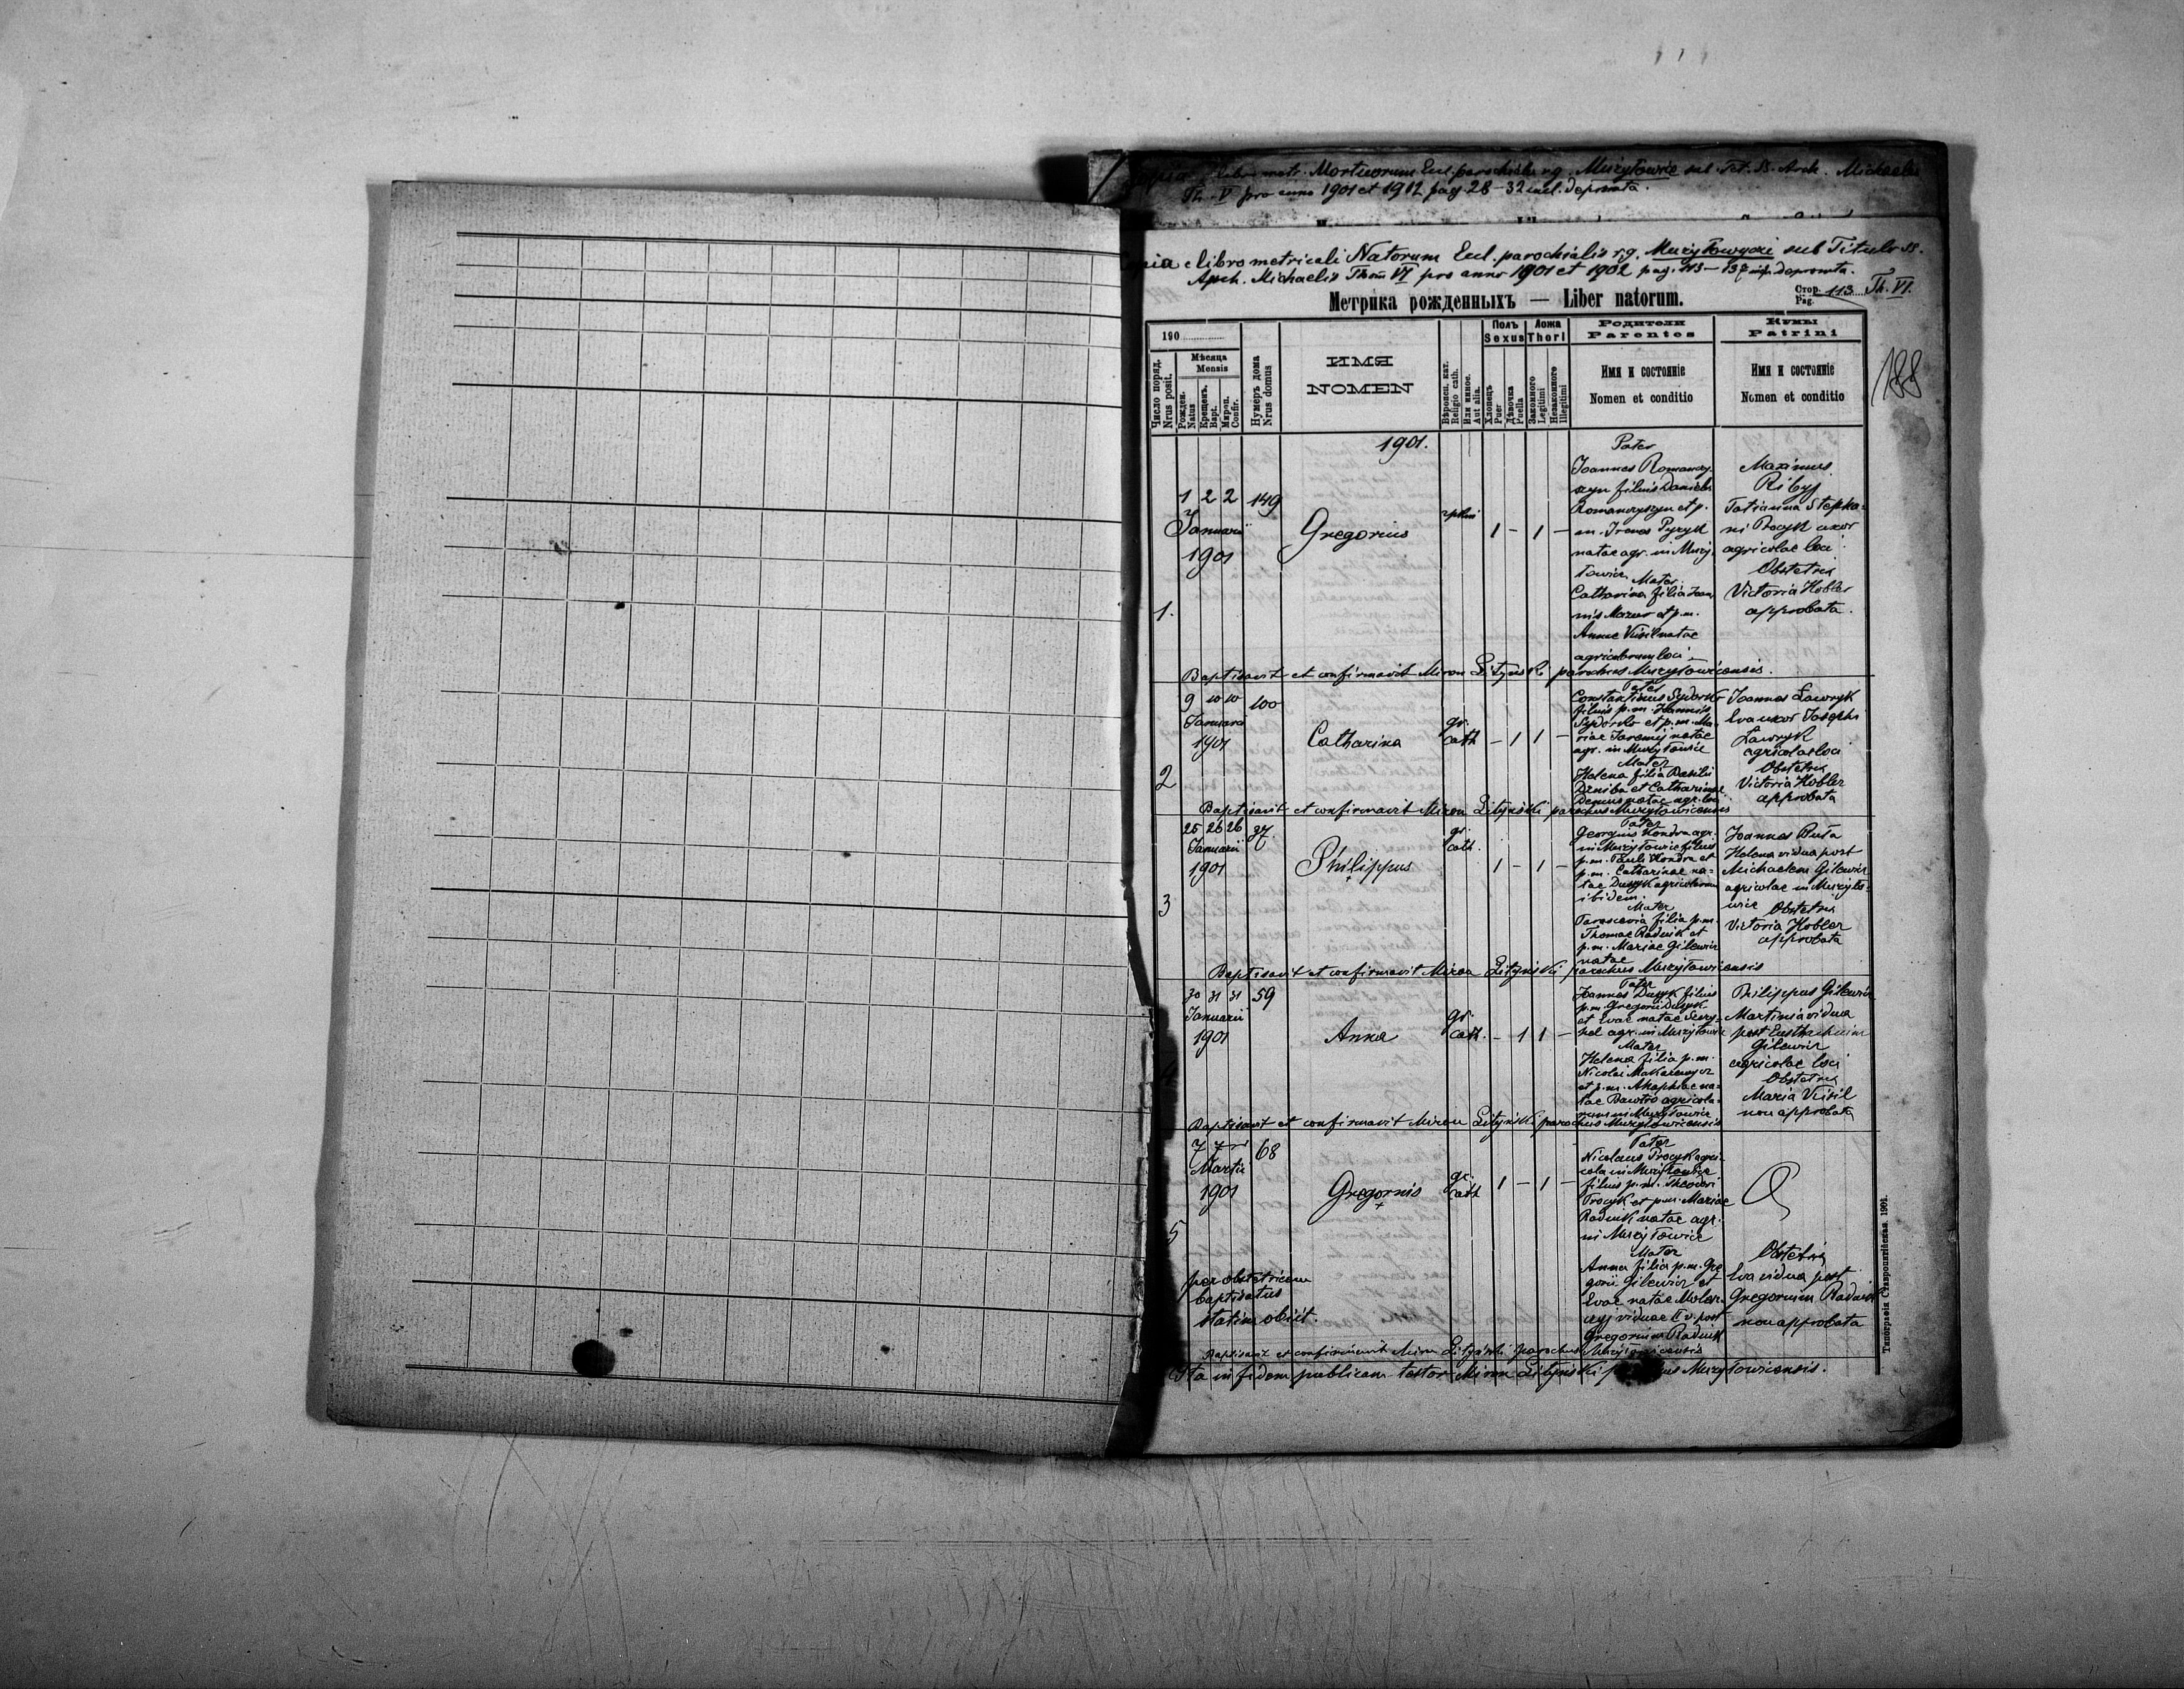 libro metr. Mortuorum Eccl. parochialis r.g. Mużyłowice sub Tit. SS. Arch. Michaelis
Th. V pro anno 1901 et 1912 pag. 28-32 incl. deprompta.
Copia e libro metricali Natorum Eccl. parochialis r.g. sub Titulo SS.
Arch. Michaelis Thom VI pro anno 1901 et 1902 pag. 113-137 deprompta.
Метрика рожденныхъ — Liber natorum.
Стор. Pag. 113 Th. VI.
188
190
Число поряд. Nrus posit.
Мѣсяца Mensis
Рожден. Natus
Крещенъ. Bapt.
Миропом. Confir.
Нумеръ дома Nrus domus
ИМЯ
NOMEN
Вѣроисп. кат. Religio cath.
Или инное. Aut alia.
Полъ Sexus
Хлопецъ Puer
Дѣвочка Puella
Ложа Thori
Законного Legitimi
Незаконного Illegitimi
Родители
Parentes
Имя и состоянiе
Nomen et conditio
Кумы
Patrini
Имя и состоянiе
Nomen et conditio
1901.
1.
1 2 2
Januarii
1901
149
Gregorius
1 - 1 -
Pater
Joannes Romanczy-
szyn filius Danielis
Romanczyszyn et p.
m. Irenes Pyzyk
natae agr. in Muży-
łowice Mater
Catharina filia Joan-
nis Mazur et p.m.
Annae Kisil natae
agricolarum loci
Maximus
Ribyj
Tatianna Stepha-
ni Procyk uxor
agricolae loci
Obstetrix
Victoria Hobler
approbata.
Baptisavit et confirmavit Miron Lityński parochus Mużyłovicensis.
2
9 10 10
Januarii
1901
100
Catharina
gr.
cath
- 1 1 -
Pater
Constantinus Sydorko
filius p.m. Joannis
Sydorko et p.m. Ma-
riae Jaremij natae
agr. in Mużyłowice
Mater
Helena filia Basilii
Dziuba et Catharinae
Demus natae agr. loci
Joannes Ławryk
Eva uxor Josephi
Ławryk
agricolae loci
Obstetrix
Victoria Hobler
approbata
Baptisavit et confirmavit Miron Lityński parochus Mużyłovicensis
3
25 26 26
Januarii
1901
37.
Philippus
+
gr.
cath.
1 - 1 -
Pater
Georgius Kondra agr.
in Mużyłowice filius
p.m. Pauli Kondra et
p.m. Catharinae na-
tae Dusyk agricolarum
ibidem.
Mater
Parascevia filia p.m.
Thomae Radwik et
p.m. Mariae Gilewicz
natae
Joannes Buta
Helena vidua post
Michaelem Gilewicz
agricolae in Mużyło-
wice Obstetrix
Victoria Hobler
approbata
Baptisavit et confirmavit Miron Lityński parochus Mużyłovicensis
30 31 31
Januarii
1901
59
Anna
gr.
cath.
- 1 1 -
Pater
Joannes Dusyk filius
p.m. Gregorii Dusyk
et Evae natae
agr. in Mużyłowice
Mater
Helena filia p.m.
Nicolai
et p.m. na-
tae agricola-
rum in Mużyłowice
Philippus Gilewicz
Martinia vidua
post Eusthachium
Gilewicz
agricolae loci
Obstetrix
Maria Kisil
non approbata
Baptisavit et confirmavit Miron Lityński parochus Mużyłovicensis
5
7 7 -
Martii
1901
68
Gregorius
+
gr.
cath
1 - 1 -
per obstetricem
baptisatus
statim obiit.
Pater
Nicolaus Procyk agri-
cola in Mużyłowice
filius p.m. Theodori
Procyk et p.m. Mariae
Radwik natae agr.
in Mużyłowice
Mater
Anna filia p.m. Gre-
gorii Gilewicz et
Evae natae
viduae II v. post
Gregorium Radwik
Obstetrix
Eva vidua post
Gregorium Radwik
non approbata
Baptisavit et confirmavit Miron Lityński parochus Mużyłovicensis
Ita in fidem publicam testor Miron Lityński Mużyłovicensis.
Типографiя Ставропигiйская. 1901.